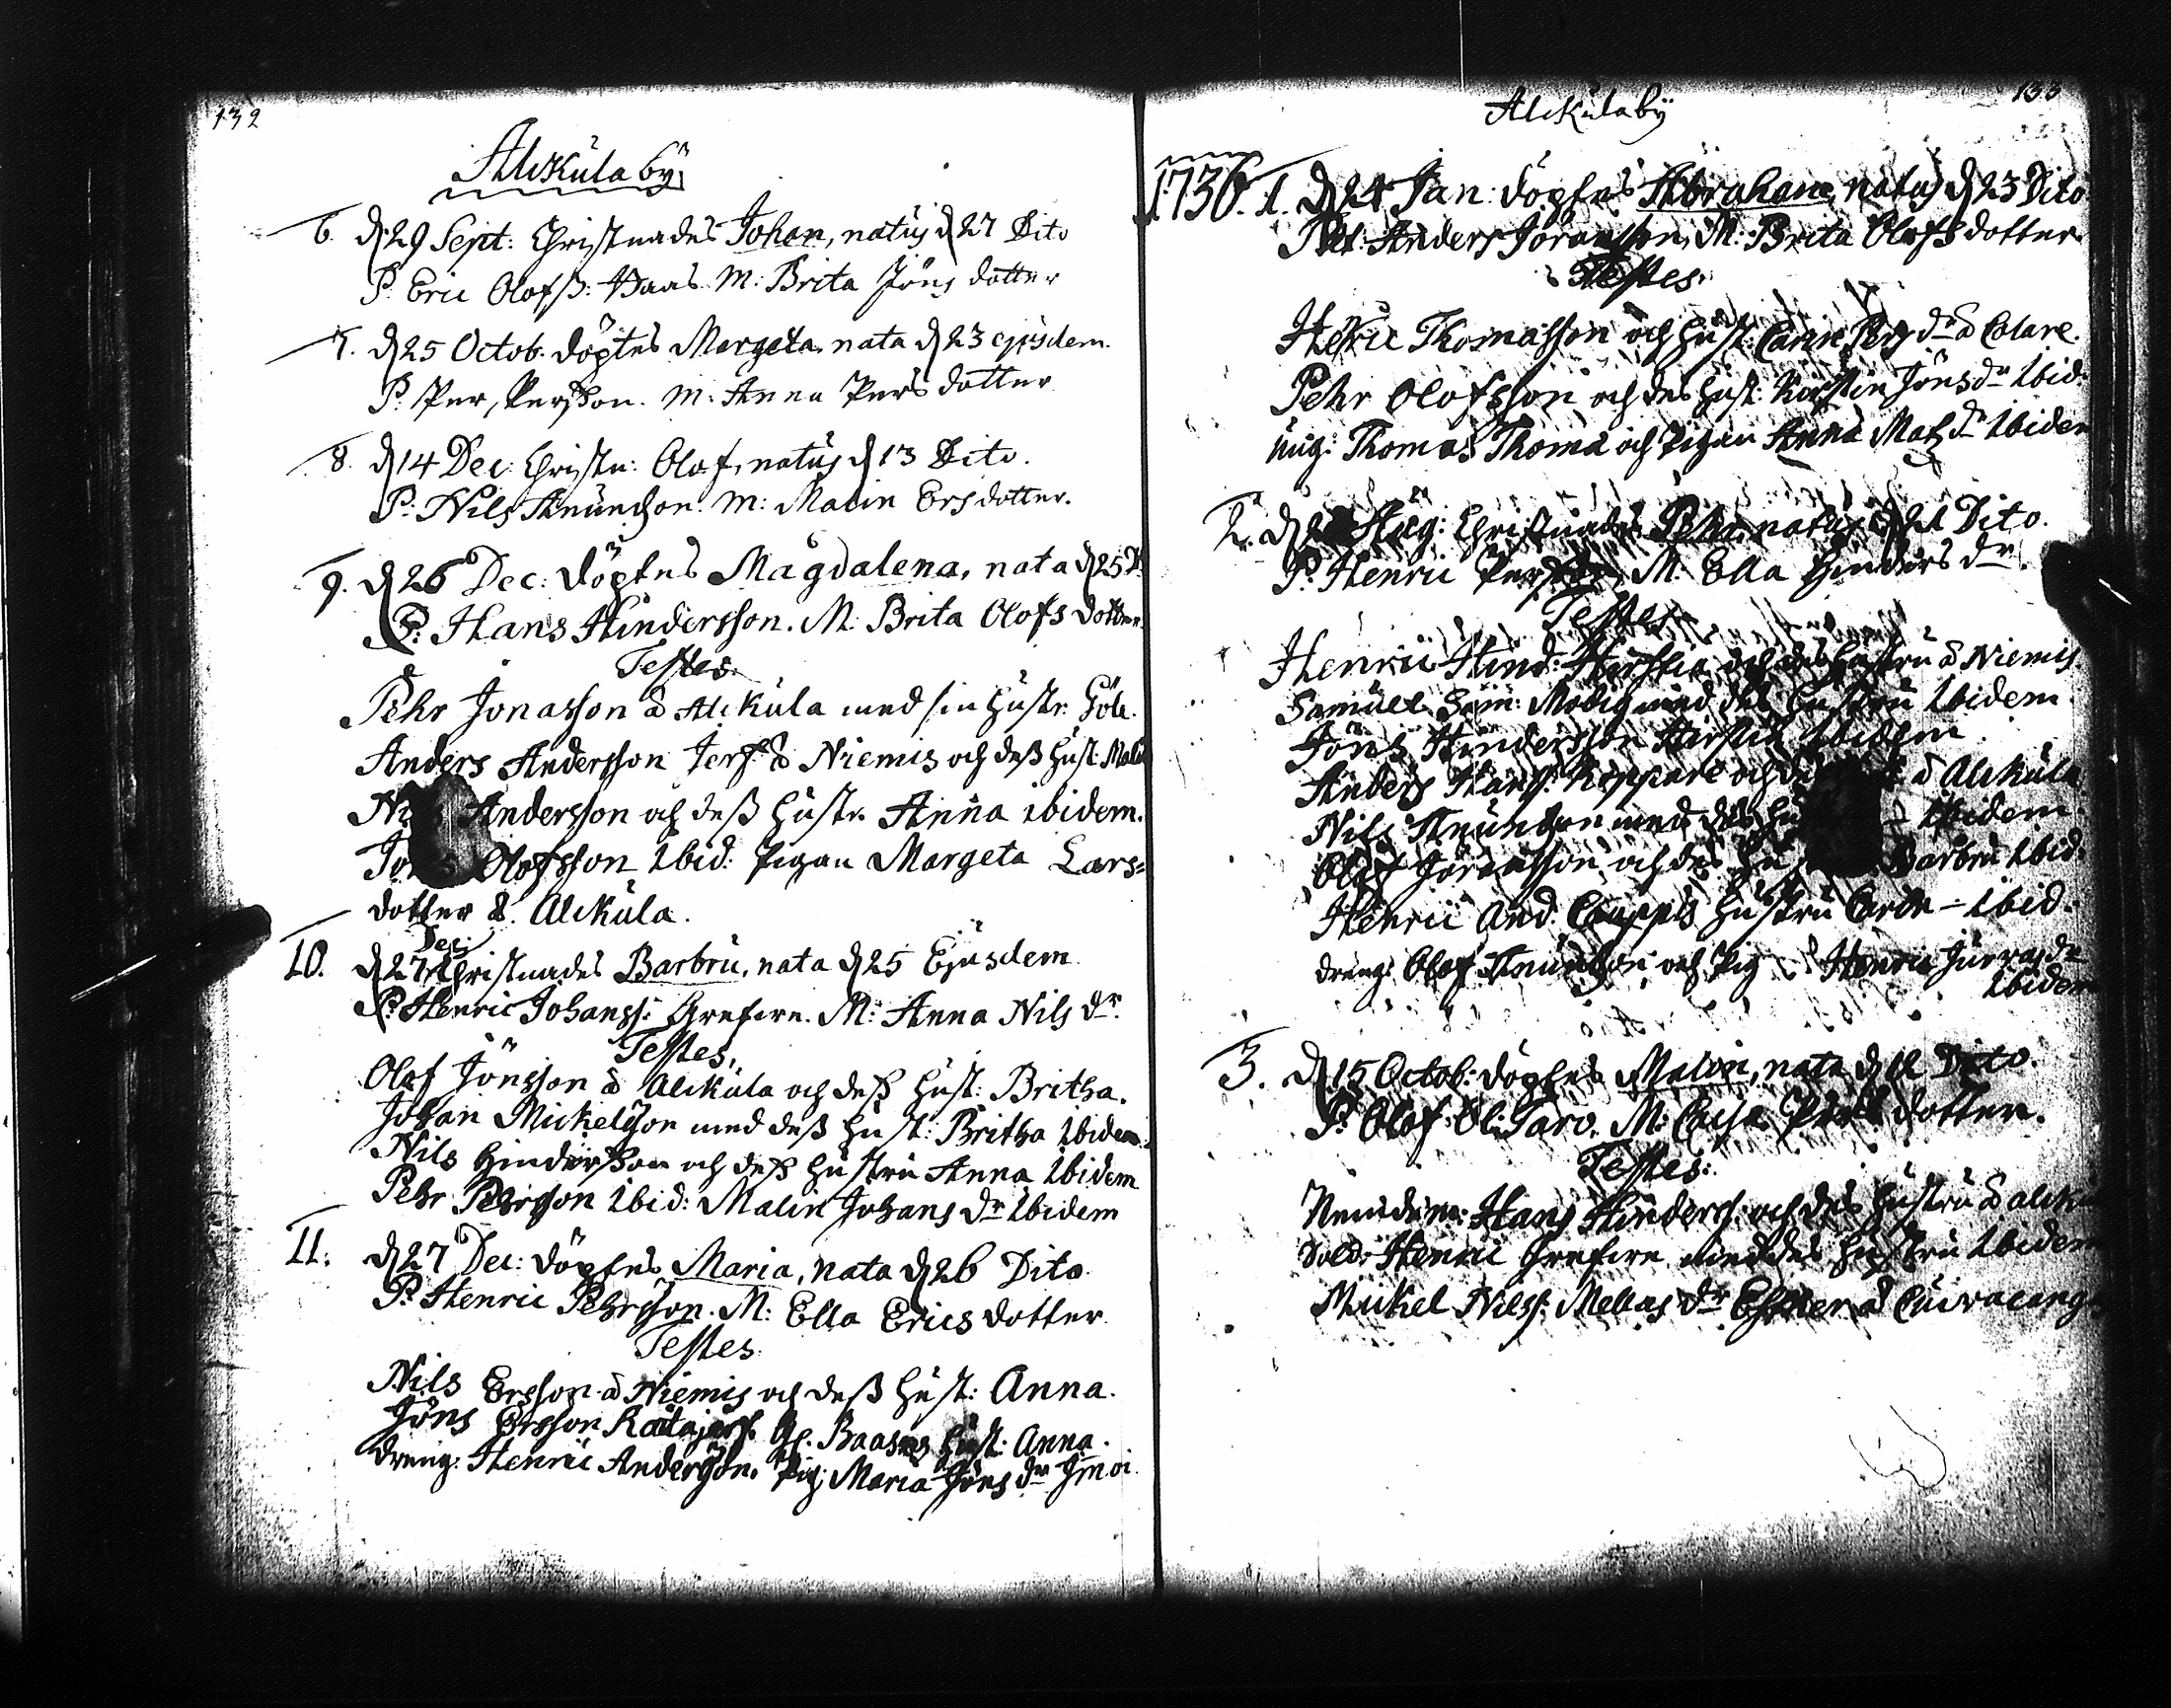 132
Alkula by
6. d 29 Sept: Christnades Johan, natus d 27 Dito
P. Eric Olofß: Haas. M: Brita Jöns dotter
7. d 25 Octob. döptes Margeta, nata d 23 ejusdem.
P: Per, Perßon. M: Anna Pers dotter
8. d 14 Dec: Christn: Olof, natus d 13 Dito.
P: Nils Knundson. M: Malin Ersdotter.
9. d 26 Dec: döptes Magdalena, nata d 25
P: Hans Hindersson. M: Brita Olofs dotter
Testes.
Pehr Jonasson à Alckula med sin Hustr.
Anders Andersson à Niemis och deß Hust.
Andersson och deß Hustr. Anna ibidem.
Olofsson Ibid: Pigan Margeta Lars=
dotter à. Alckula.
10. d 27 Dec: Christnades Barbru, nata d 25 Ejusdem
P: Henric Johanss: Grefwe. M: Anna Nils dr.
Testes.
Olof Jönsson à Alckula och deß Hust: Britha.
Johan Mickelson med deß Hust: Britha Ibidem.
Nils Hinderßon och deß Hustru Anna Ibidem
Pehr Pehrson Ibid: Malin Johans dr Ibidem
11. d 27 Dec: döptes Maria, nata d 26 Dito
P: Henric Pehrson. M: Ella Erics dotter.
Testes.
Nils Ersson à Niemis och deß Hust: Anna.
Jöns Ersson Hust: Anna.
dreng: Henric Anderson. Pig: Maria Jöns dr
133
Alckula by
1736. 1. d 24 Jan: döptes Abraham, natus d 23 Dito
Anders Joransson, M: Brita Olofs dotter
Testes:
Henric Thomasson och Hust: Carin Pers dr à Colare.
Pehr Olofsson och des Hust: Kirstin Jöns dr Ibid.
Thomas Thoma och Pigan Anna Mats dr Ibidem
2. d Aug: Christnades Pehr, natus d 21 Dito.
P: Henric Person, M: Ella Hinders dr.
Testes
Henric Hind: och des Hustru à Niemis
Samuel Sam: Modig med des Hustru Ibidem.
Jöns Hindersson Ibidem
Anders Hans: Koppare och à Alckula
Nils Knundson med des Hu Ibidem.
Olof Joransson och des Hu Barbru Ibid.
Henric And. Hustru Carin - Ibid.
dreng: Olof och Pig Henric
Ibidem
3. d 15 Octob: döptes Malin, nata d 11 Dito.
P: Olof Ol: Taro. M: Pers dotter.
Testes:
Hans Hinderss: och des Hustru à
Sold: Henric Grefwe med des Hustru Ibidem
Mickel Nilss: dr à